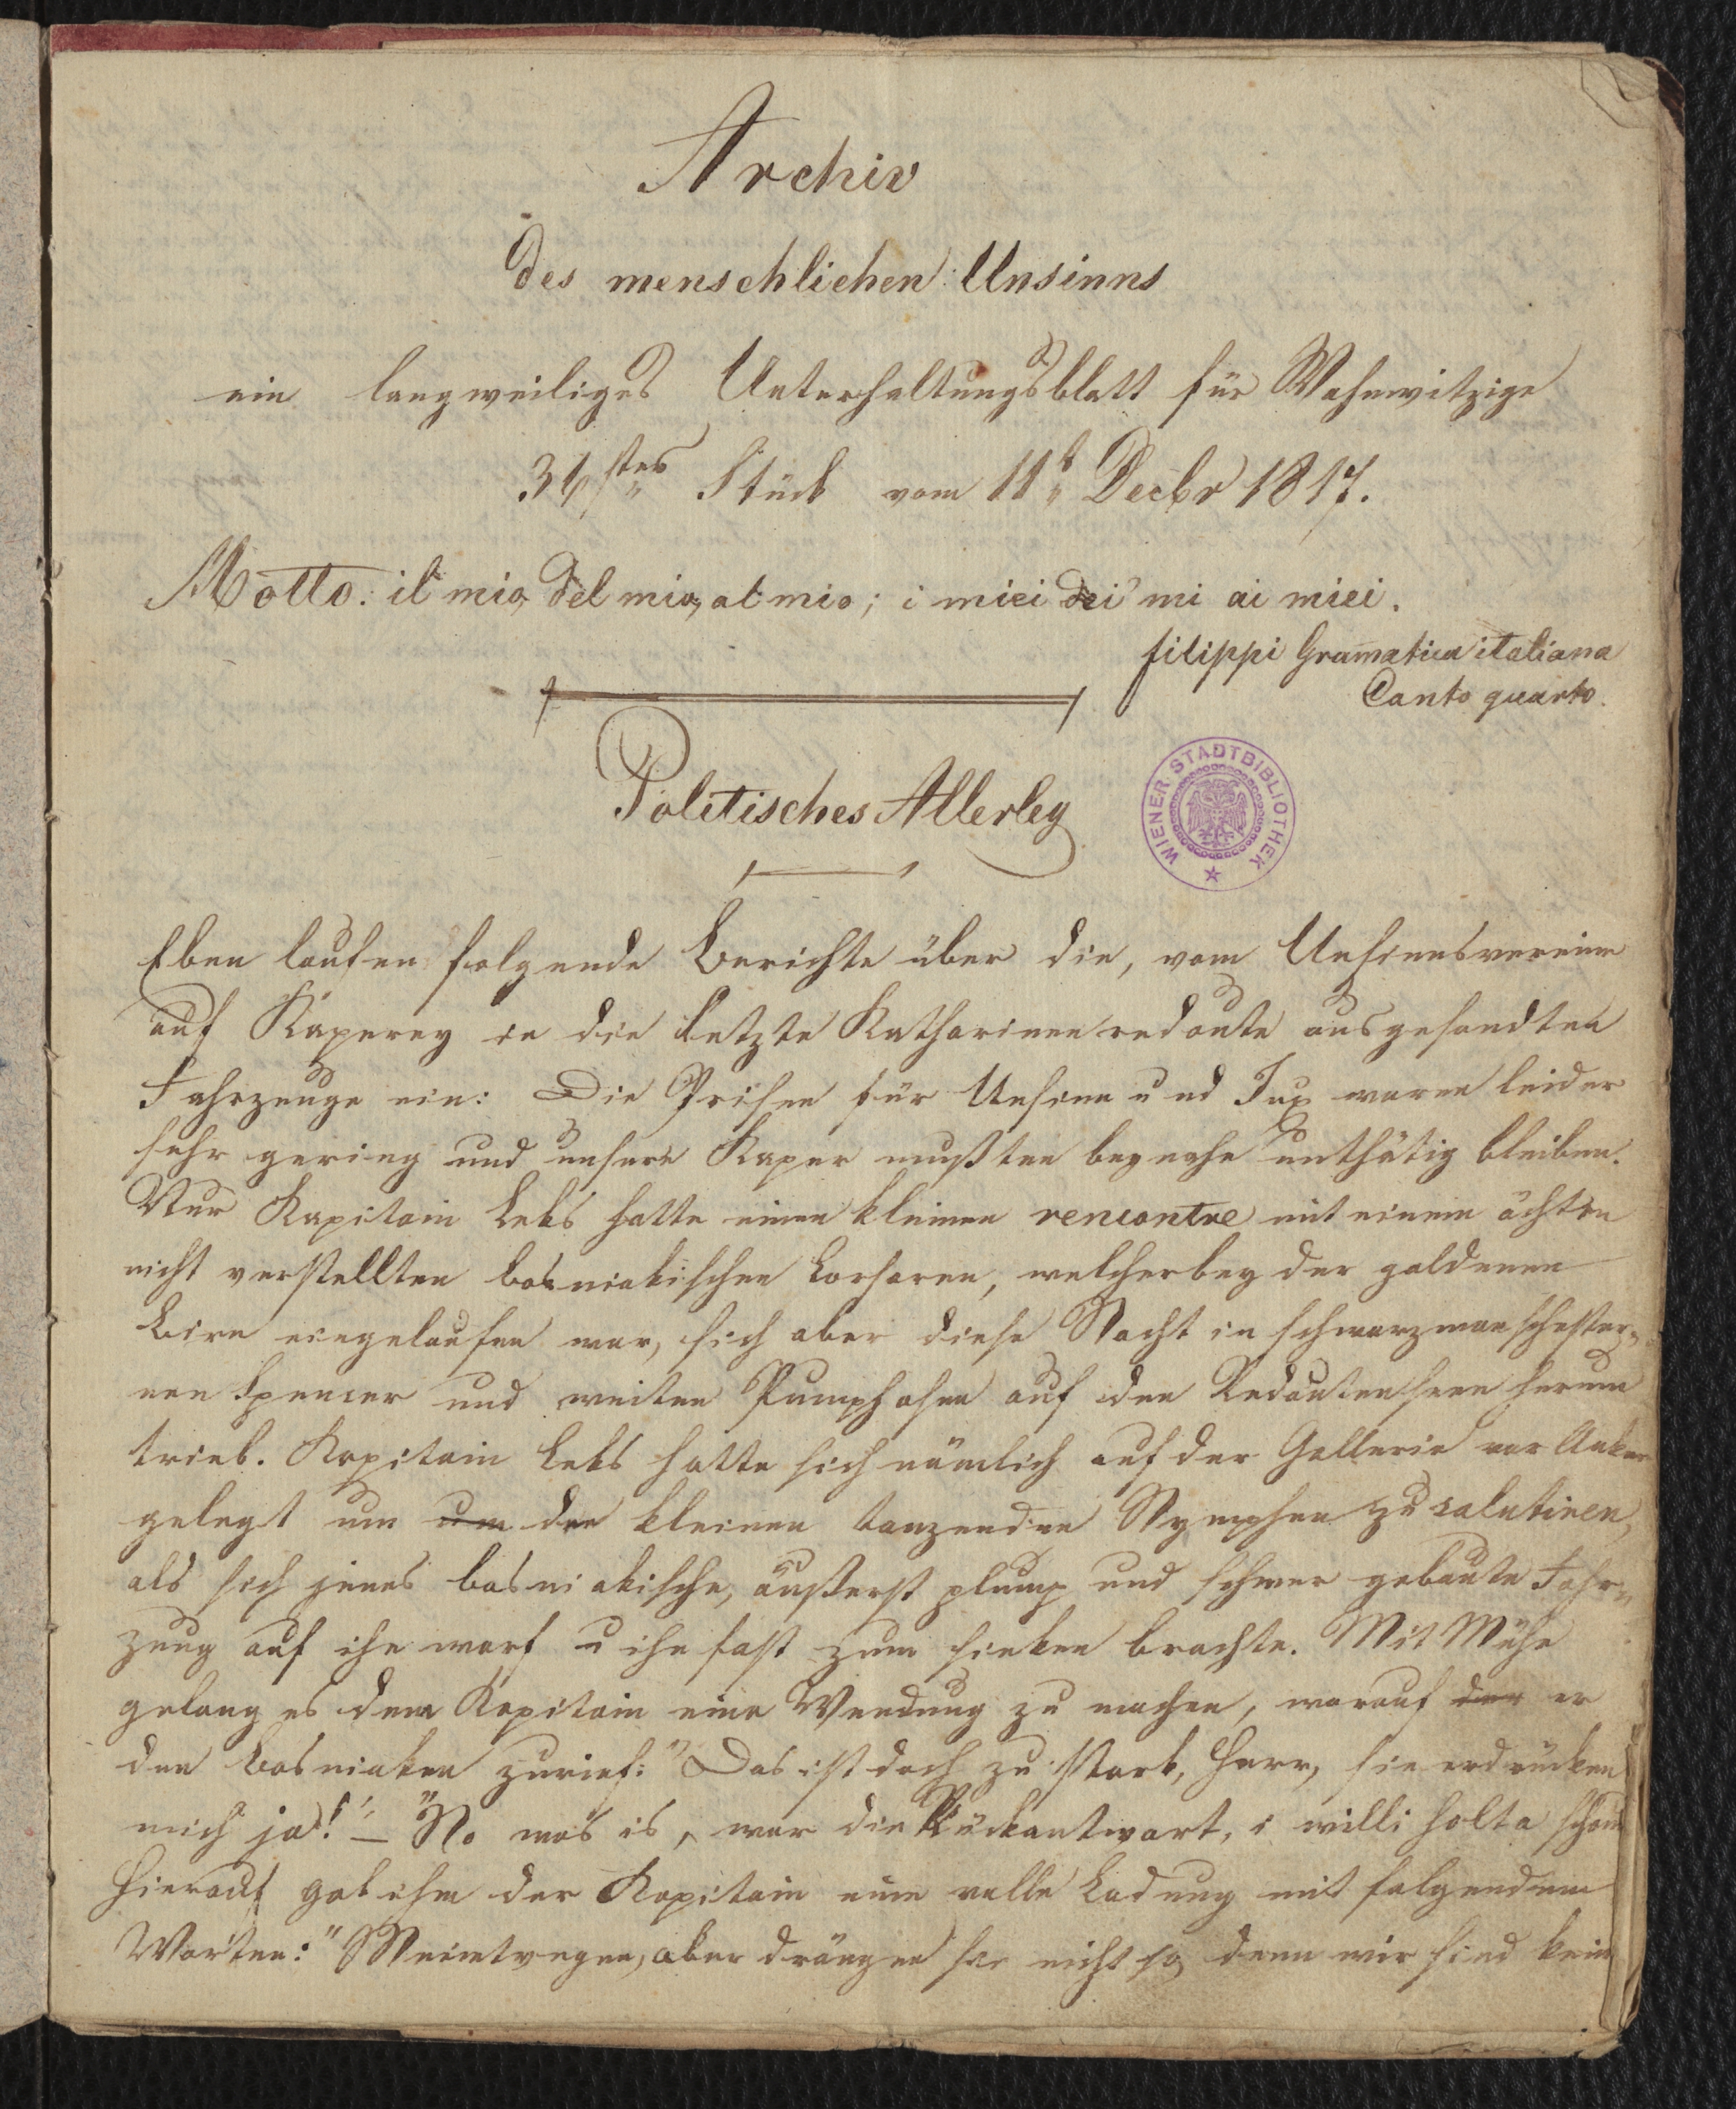 Archiv
des menschlichen Unsinns
ein langweiliges Unterhaltungsblatt für Wahnwitzige
Stück vom 11t Decbr 1817.
Motto: il mio, del mio, al mio; i miei dei mi ai miei.
filippi Gramatica italiana
Canto quarto.
Politisches Allerley
WIENER STADTBIBLIOTHEK
Eben laufen folgende Berichte über die, vom Unsinnsvereine
auf Kaperey in die letzte Katharinenredoute ausgesandten
Fahrzeuge ein: Die Prisen für Unsinn und Jux waren leider
sehr gering und unsere Kaper mußten beynahe unthätig bleiben.
Nur Kapitain Leks hatte einen kleinen rencontre mit einem ächten
nicht verstellten bosniakischen Corsaren, welcher bey der goldenen
Birn eingelaufen war, sich aber diese Nacht in schwarzmanschester=
nen Spencer und weiten Pumphosen auf den Redoutenseen herum
trieb. Kapitain Leks hatte sich nämlich auf der Gallerie vor Anker
gelegt um um die kleinen tanzenden Nymphen zu salutiren,
als sich jenes bosniakische, äußerst plump und schwer gebaute Fahr=
zeug auf ihn warf u ihn fast zum sinken brachte. Mit Mühe
gelang es dem Kapitain eine Wendung zu machen, worauf er
den Bosniaken zurief: "Das ist doch zu stark, Herr, sie erdrücken
mich ja!" – "No wos is, war die Rückantwort, i willi holta schoun
Hierauf gab ihm der Kapitain eine volle Ladung mit folgendem
Worten: "Meinetwegen, aber drängen sie nicht so, denn wir sind kein